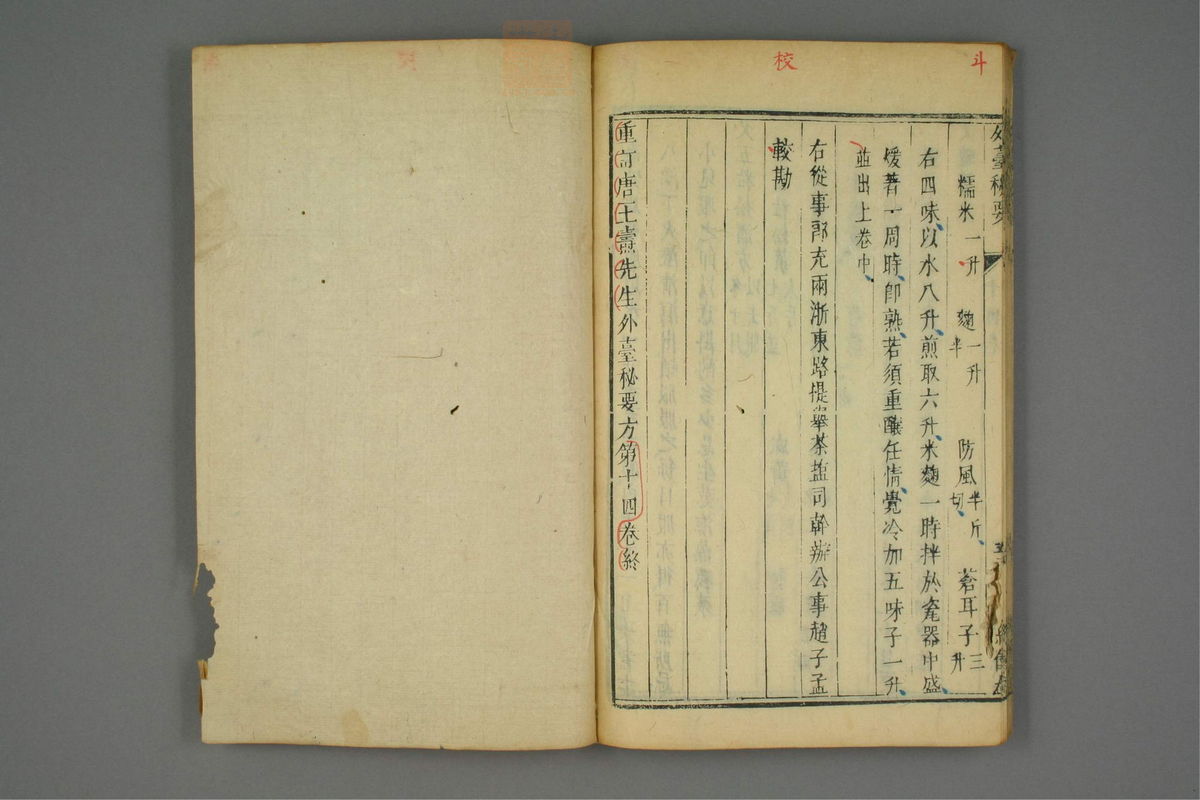 斗
校
外臺秘要
糯米一升 麴一升半 防風半斤切 蒼耳子三升
右四味以水八升煎取六升米麴一時拌於瓷器中盛
煖著一周時卽熟若須重釀任情覺冷加五味子一升
並出上卷中
右從事郎充兩浙東路提舉茶鹽司幹辦公事趙子孟
較勘
重訂唐王燾先生外臺秘要方第十四卷終